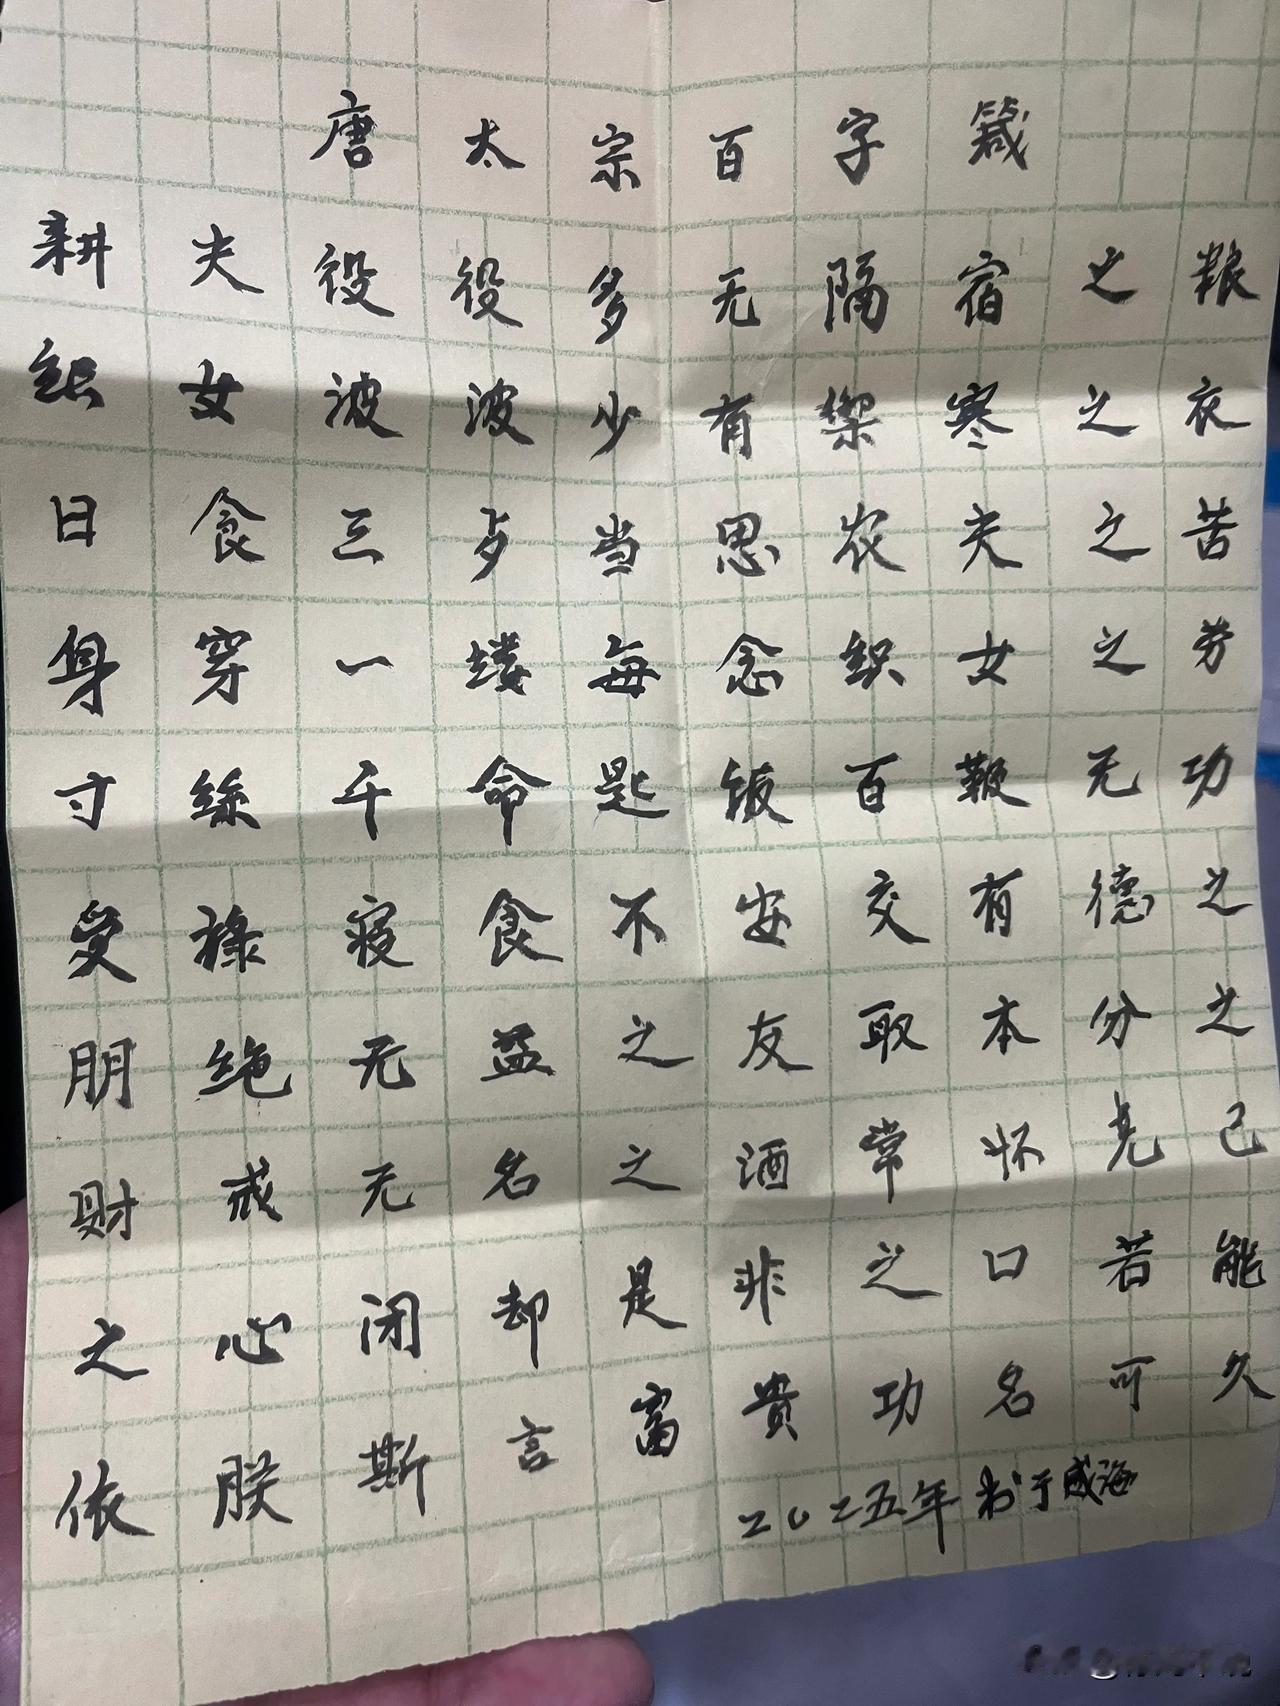 唐太宗百字箴
耕夫役役多无隔宿之粮
织女波波少有禦寒之衣
日食三歺当思农夫之苦
身穿一缕每念织女之劳
寸絲千命匙饭百鞭无功
受禄寝食不安交有德之
朋绝无益之友取本分之
财戒无名之酒常怀克己
之心闭却是非之口若能
依朕斯言富贵功名可久
二0二五年书于威海